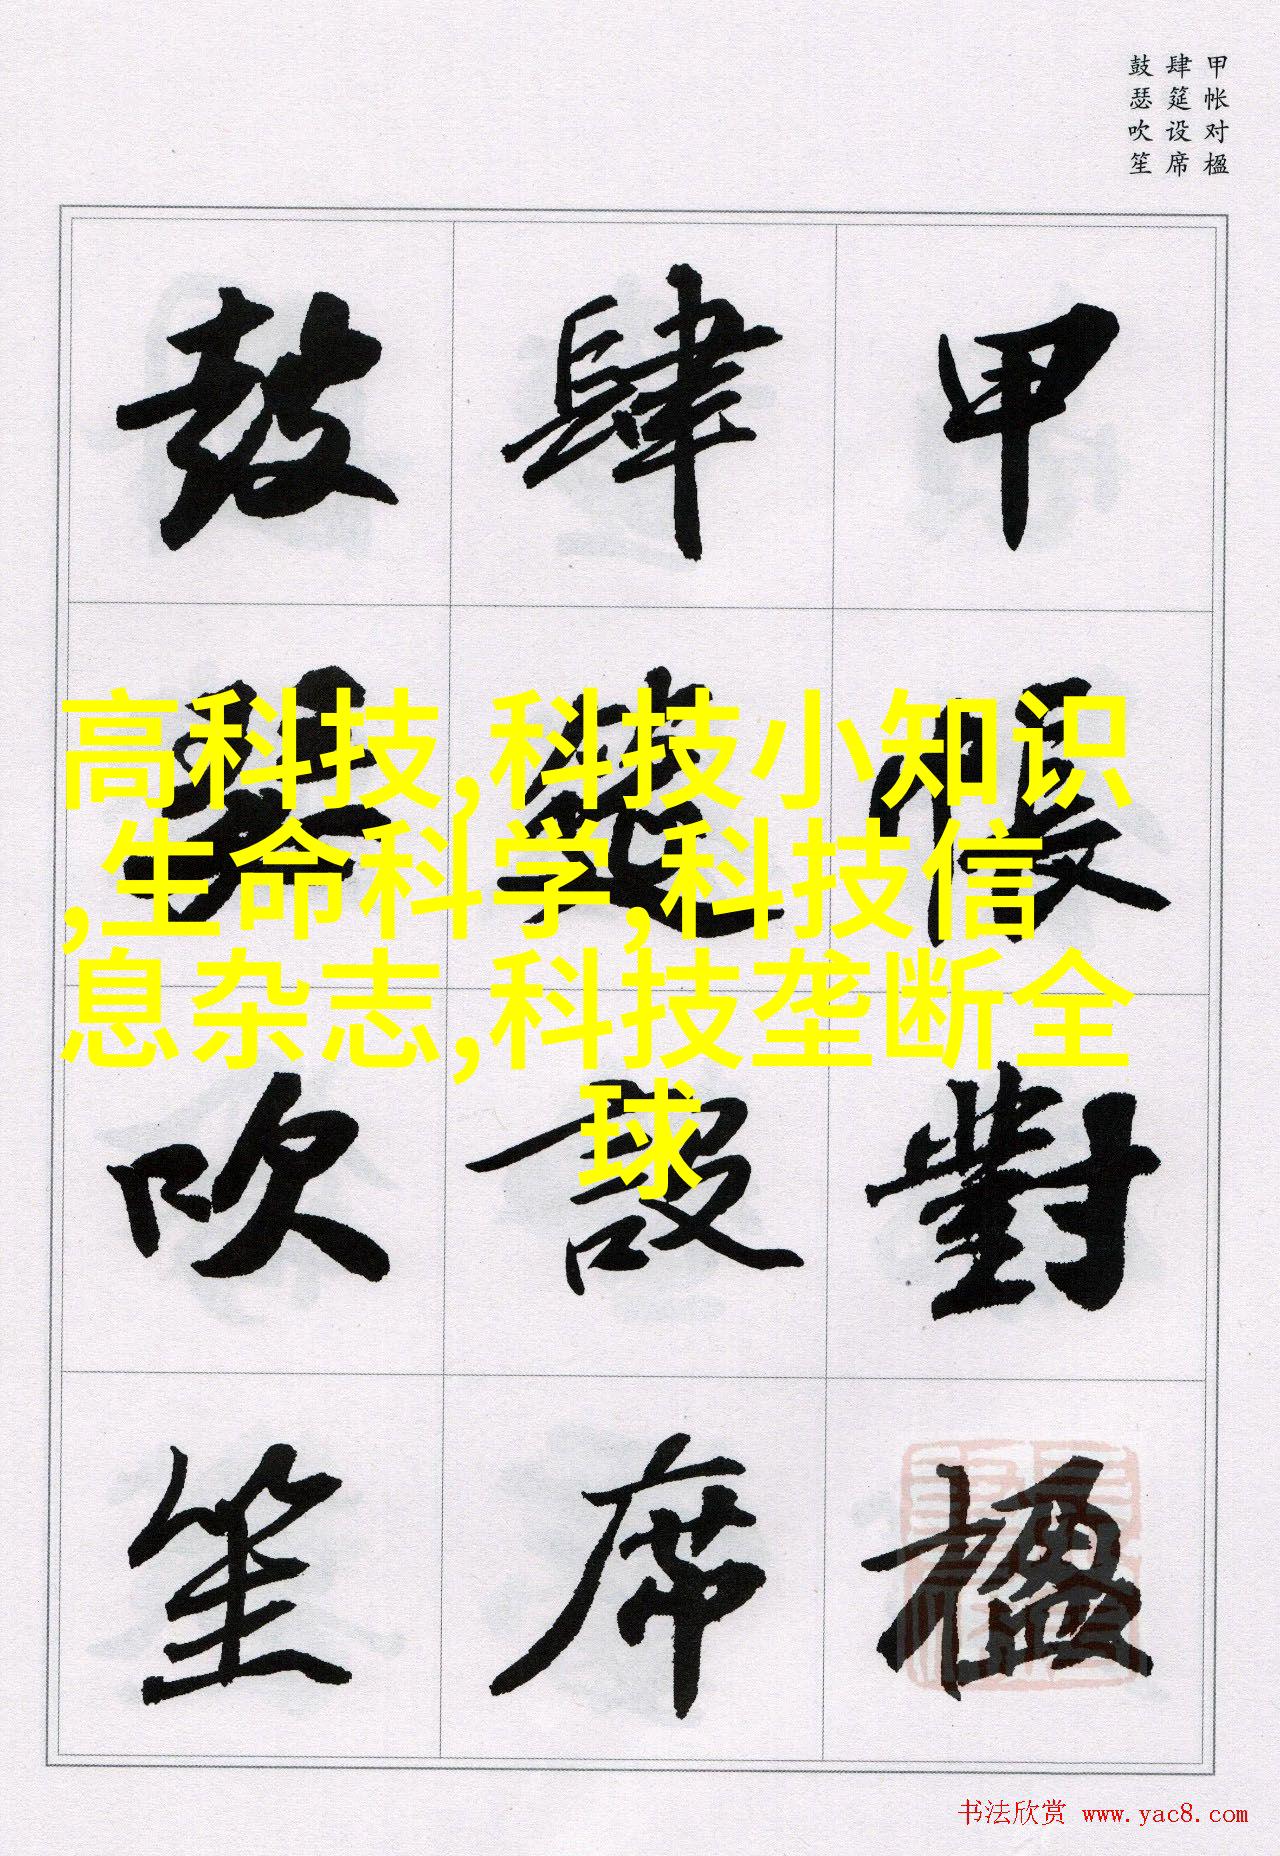 甲帐对楹
肆筵设席
鼓瑟吹笙
甲帳對楹
肆筵設席
鼓瑟吹笙
高科技,科技小知识
,生命科学,科技信
息杂志,科技垄断全
球
书法欣赏 www.yac8.com